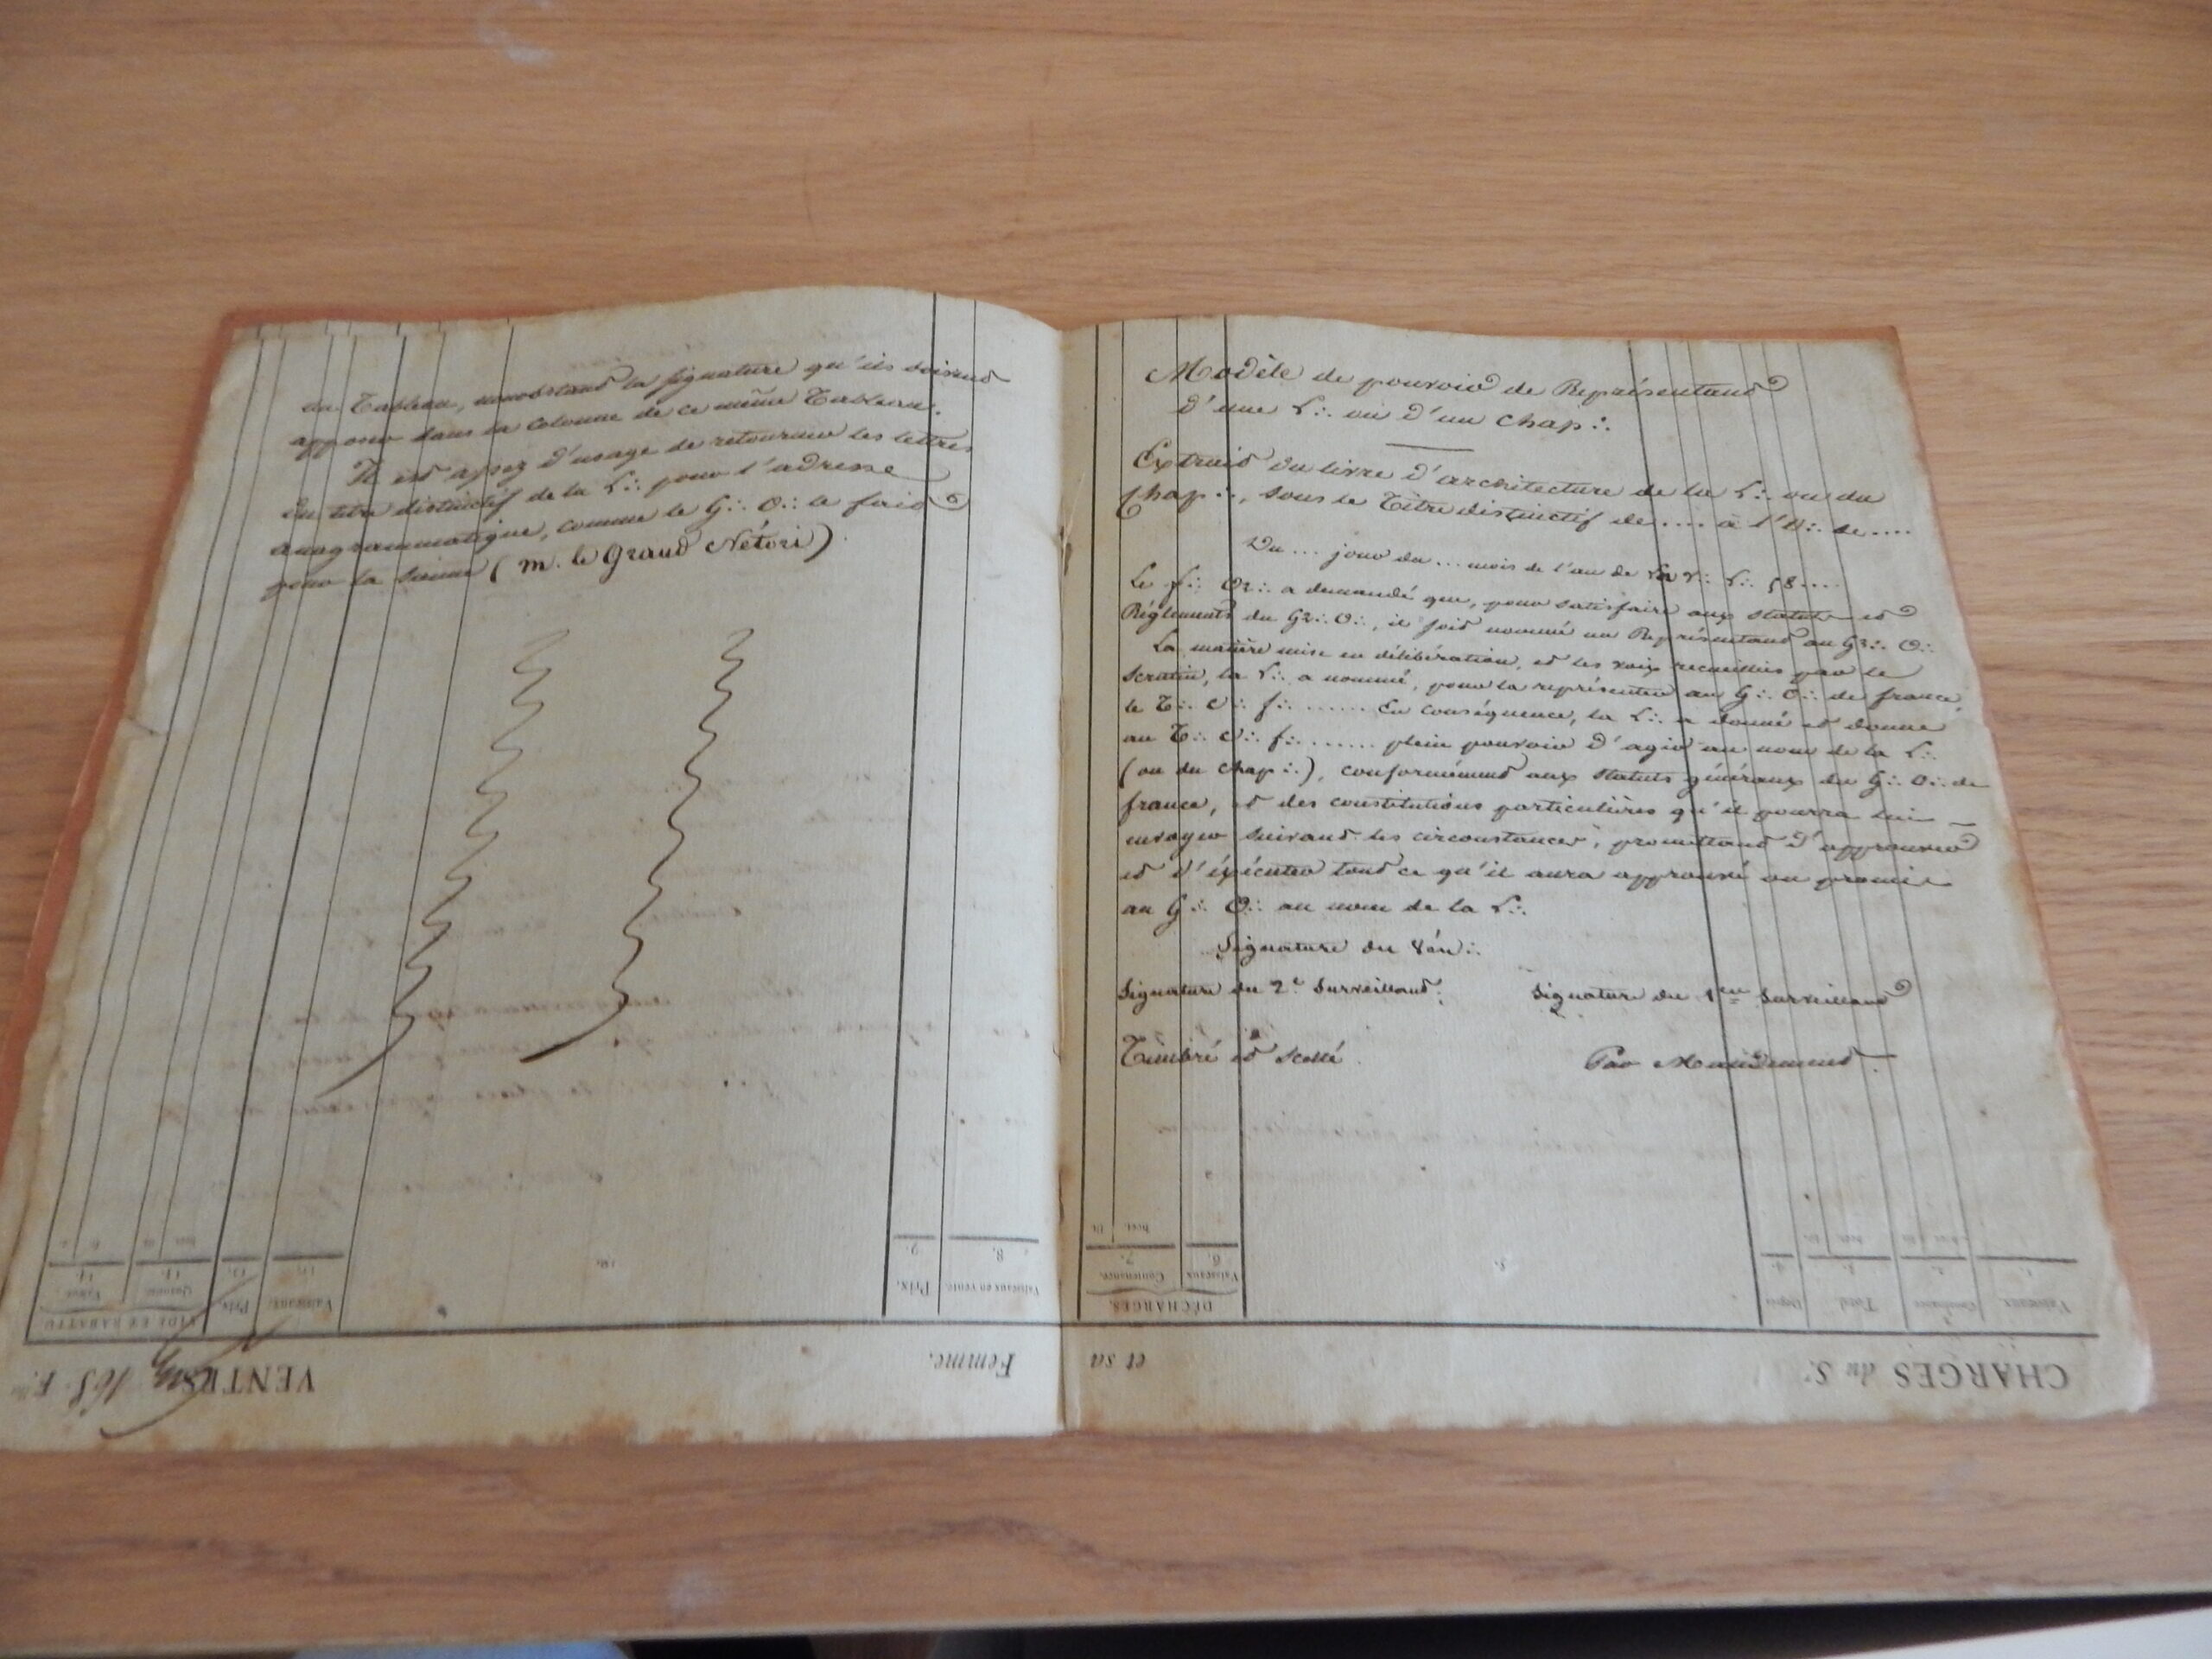 au Tableau, nonobstant la signature qu'ils doivent
apposer dans la colonne de ce même Tableau.
Il est assez d'usage de retourner les lettres
du titre distinctif de la L∴ pour l'adresse
anagrammatique, comme le G∴ O∴ le fait
pour la sienne (m. le Grand Nétori)
Modèle de pouvoir de Représentant
d'une L∴ ou d'un Chap∴
Extrait du livre d'architecture de la L∴ ou du
Chap∴, sous le Titre distinctif de.... à l'O∴ de....
Du... jour du... mois de l'an de la V∴ L∴ 58....
Le f∴ Or∴ a demandé que, pour satisfaire aux statuts et
Réglements du Gr∴ O∴, il soit nommé un Représentant au G∴ O∴
La matière mise en délibération, et les voix recueillies par le
scrutin, la L∴ a nommé, pour la représenter au G∴ O∴ de france,
le T∴ C∴ f∴ ...... En conséquence, la L∴ a donné et donne
au T∴ C∴ f∴ ...... plein pouvoir d'agir au nom de la L∴
(ou du Chap∴), conformément aux statuts généraux du G∴ O∴ de
france, et des constitutions particulières qu'il pourra lui
envoyer suivant les circonstances, promettant d'approuver
et d'éxécuter tout ce qu'il aura approuvé ou promis
au G∴ O∴ au nom de la L∴
Signature du Vén∴
Signature du 2.e Surveillant. Signature du 1er Surveillant
Timbré et Scellé Par Mandement
DÉCHARGES.
Vaisseaux Contenance.
6. 7.
Vaisseaux en vente. Prix.
8. 9.
VENTES
Femme.
et sa
CHARGES du S.r